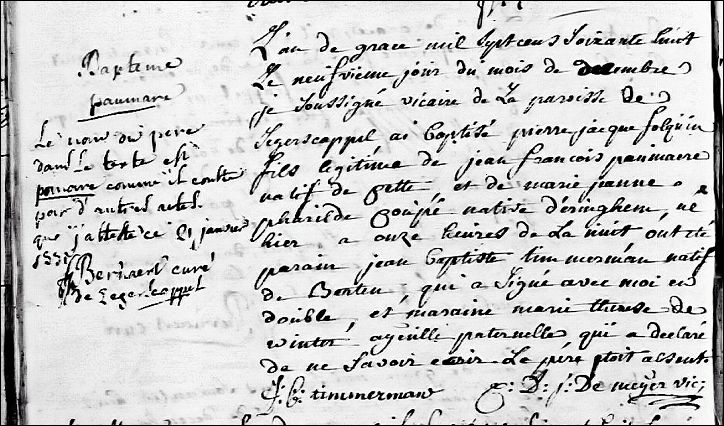 Bapteme
paumare
Le nom du pere
dans Le texte est
pomare comme il conste
par d'autres actes.
que j'atteste ce 21 janvier
Bernaert curé
de Zegerscappel
L'an de grace mil sept cens soixante huit
Le neufvieme jour du mois de decembre
je soussigné vicaire de La paroisse de
Segerscappel, ai baptisé pierre jacque folquin
fils legitime de jean francois paumaere
natif de et de marie jeanne
pharilde goupé native d'eringhem, né
hier a onze heures de La nuit ont été
parain jean baptiste timmerman natif
de qui a signé avec moi en
double, et maraine marie therese de
winter ayeulle paternelle qui a declaré
de ne savoir ecrir Le père etoit absent.
J: b: timmerman C: D: j: De meyer vic;